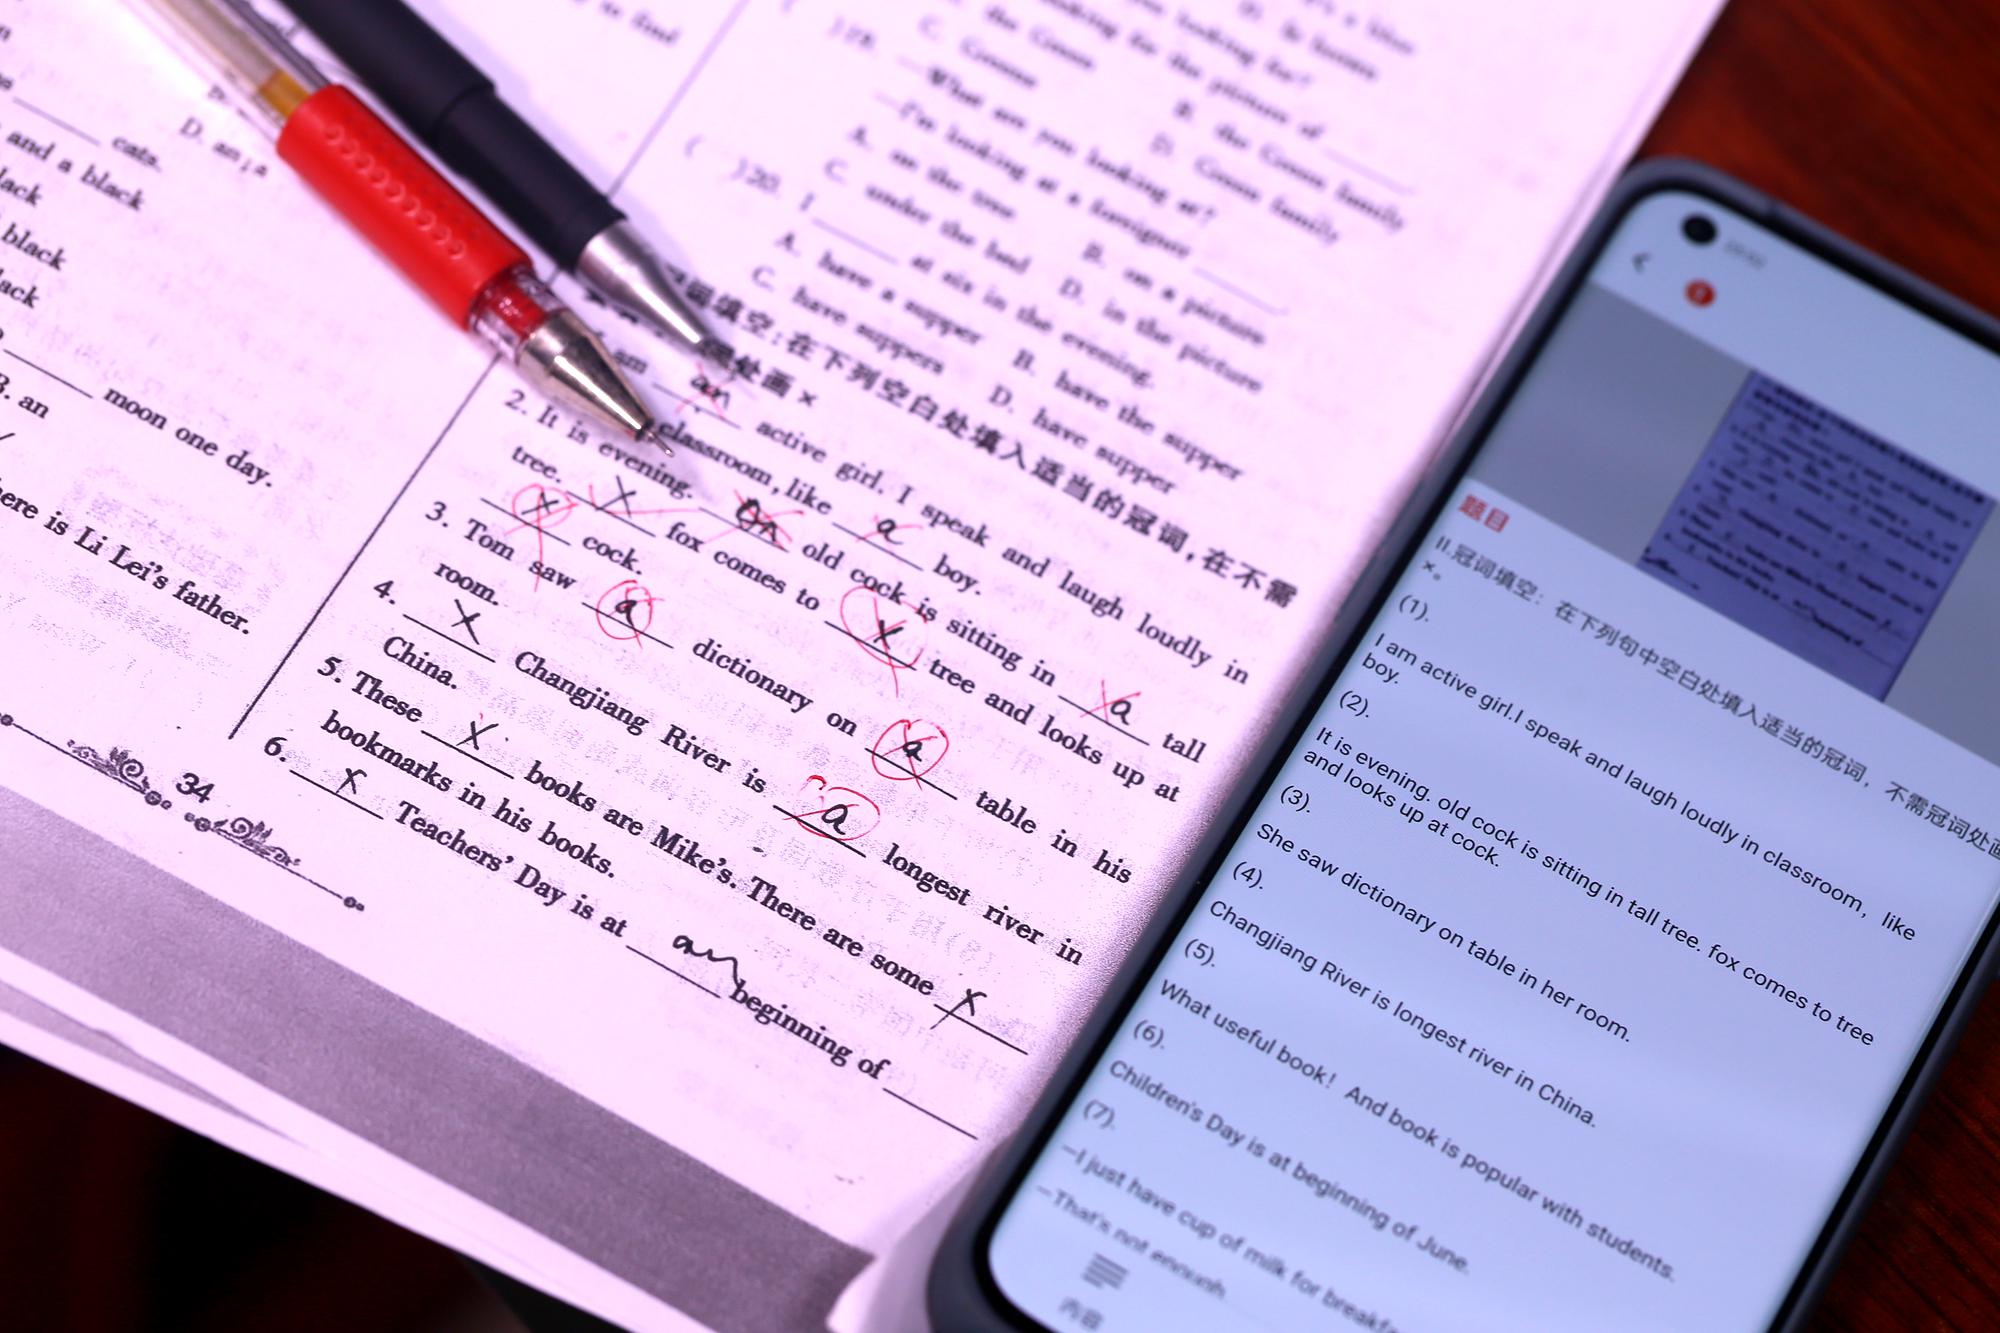 cats.
D. an; a
and a black
black
lack
moon one day.
B. an
here is Li Lei's father.
34
to find
)19.
—What are you looking at?
—I'm looking at a foreigner
A. on the tree
B. on a picture
C. under the bed
D. in the picture
)20. I ____ at six in the evening.
A. have a supper
B. have the supper
C. have suppers
D. have supper
词填空:在下列空白处填入适当的冠词,在不需
处画×
am an active girl. I speak and laugh loudly in
classroom, like a boy.
2. It is evening. an old cock is sitting in a tall
tree. x fox comes to x tree and looks up at
x cock.
3. Tom saw a dictionary on a table in his
room.
4. x Changjiang River is a longest river in
China.
5. These x books are Mike's. There are some x
bookmarks in his books.
6. x Teachers' Day is at an beginning of ____
题目
II.冠词填空:在下列句中空白处填入适当的冠词,不需冠词处画
×。
(1).
I am active girl.I speak and laugh loudly in classroom, like
boy.
(2).
It is evening. old cock is sitting in tall tree. fox comes to tree
and looks up at cock.
(3).
She saw dictionary on table in her room.
(4).
Changjiang River is longest river in China.
(5).
What useful book! And book is popular with students.
(6).
Children's Day is at beginning of June.
(7).
—I just have cup of milk for breakfa
—That's not enough
内容